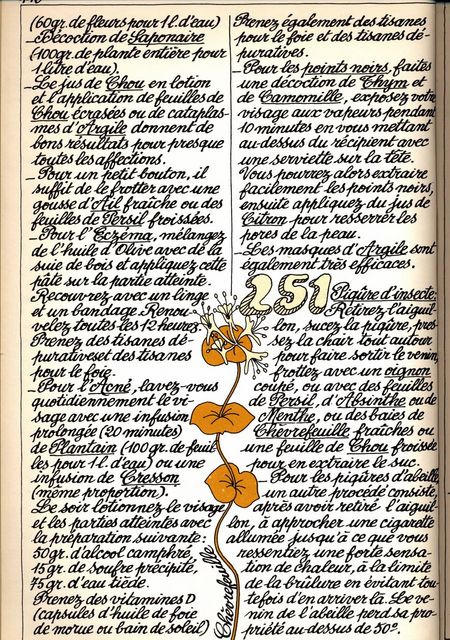 (60gr. de fleurs pour 1 l. d'eau)
_Décoction de Saponaire
(100gr. de plante entière pour
1 litre d'eau).
_Le jus de Chou en lotion
et l'application de feuilles de
Chou écrasées ou de cataplas-
mes d'Argile donnent de
bons résultats pour presque
toutes les affections.
_Pour un petit bouton, il
suffit de le frotter avec une
gousse d'Ail fraîche ou des
feuilles de Persil froissées.
_Pour l'Eczéma, mélangez
de l'huile d'Olive avec de la
suie de bois et appliquez cette
pâte sur la partie atteinte.
Recouvrez avec un linge
et un bandage. Renou-
velez toutes les 12 heures.
Prenez des tisanes dé-
puratives et des tisanes
pour le foie.
_Pour l'Acné, lavez-vous
quotidiennement le vi-
sage avec une infusion
prolongée (20 minutes)
de Plantain (100 gr. de feuil-
les pour 1 l. d'eau) ou une
infusion de Cresson
(même proportion).
Le soir lotionnez le visage
et les parties atteintes avec
la préparation suivante:
50gr. d'alcool camphré,
15gr. de soufre précipité,
75 gr. d'eau tiède.
Prenez des vitamines D
(capsules d'huile de foie
de morue ou bain de soleil)
Chèvrefeuille
Prenez également des tisanes
pour le foie et des tisanes dé-
puratives.
_Pour les points noirs, faites
une décoction de Thym et
de Camomille, exposez votre
visage aux vapeurs pendant
10 minutes en vous mettant
au-dessus du récipient avec
une serviette sur la tête.
Vous pourrez alors extraire
facilement les points noirs,
ensuite appliquez du jus de
Citron pour resserrer les
pores de la peau.
_Les masques d'Argile sont
également très efficaces.
251 Piqûre d'insecte:
Retirez l'aiguil-
lon, sucez la piqûre, pres-
sez la chair tout autour
pour faire sortir le venin,
frottez avec un oignon
coupé, ou avec des feuilles
de Persil, d'Absinthe ou de
Menthe, ou des baies de
Chèvrefeuille fraîches ou
une feuille de Chou froissée
pour en extraire le suc.
_Pour les piqûres d'abeille,
un autre procédé consiste,
après avoir retiré l'aiguil-
lon, à approcher une cigarette
allumée jusqu'à ce que vous
ressentiez une forte sensa-
tion de chaleur, à la limite
de la brûlure en évitant tou-
tefois d'en arriver là. Le ve-
nin de l'abeille perd sa pro-
priété au-dessus de 50°.